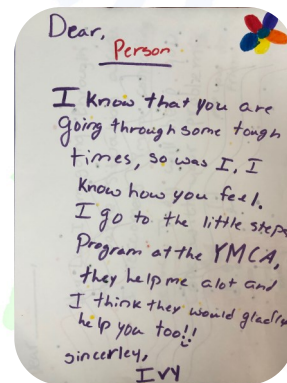 Dear,
Person
I know that you are
going through some tough
times, so was I, I
know how you feel.
I go to the little steps
Program at the YMCA,
they help me alot and
I think they would gladly
help you too!!
sincerley,
IVY